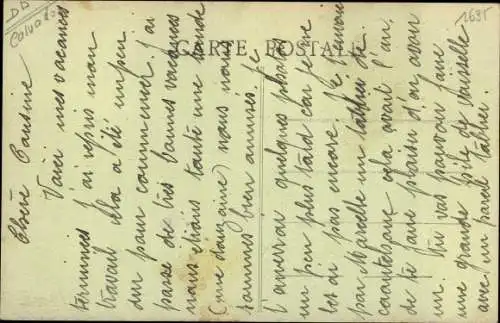 DD
Calvados
2635
CARTE POSTALE
Chère Pauline
Voici mes vacances
terminées j'ai repris mon
travail cela a été un peu
dur pour commencer. J'ai
passé de très bonnes vacances
nous étions toute une bande
(une douzaine) nous nous
sommes bien amusés. Je
t'enverrai quelques photos
un peu plus tard car je ne
les ai pas encore. Je t'envoie
par Marcelle un tablier de
caoutchouc cela avait l'air
de te faire plaisir d'en avoir
un. Tu vas pouvoir faire
une grande pile de vaisselle
avec un pareil tablier.